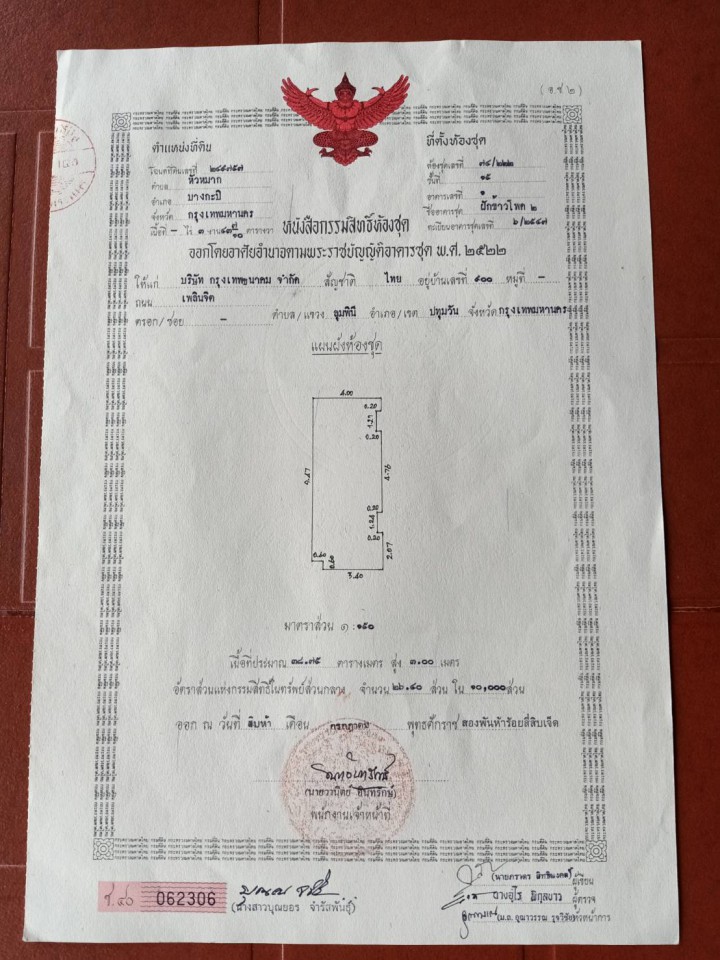 (อ.ช.๒)
ตำแหน่งที่ดิน
โฉนดที่ดินเลขที่
ตำบล หัวหมาก
อำเภอ บางกะปิ
จังหวัด กรุงเทพมหานคร
เนื้อที่ - ไร่ ๓ งาน ตารางวา
ที่ตั้งห้องชุด
ห้องชุดเลขที่ ๗๔/๒๒๒
ชั้นที่ ๑๕
อาคารเลขที่ ๑
ชื่ออาคารชุด ฝักข้าวโพด ๒
ทะเบียนอาคารชุดเลขที่ ๖/๒๕๔๗
หนังสือกรรมสิทธิ์ห้องชุด
ออกโดยอาศัยอำนาจตามพระราชบัญญัติอาคารชุด พ.ศ. ๒๕๒๒
ให้แก่ บริษัท กรุงเทพธนาคม จำกัด สัญชาติ ไทย อยู่บ้านเลขที่ ๙๐๐ หมู่ที่ -
ถนน เพลินจิต
ตรอก/ซอย - ตำบล/แขวง ลุมพินี อำเภอ/เขต ปทุมวัน จังหวัด กรุงเทพมหานคร
แผนผังห้องชุด
4.00
0.20
1.21
0.20
9.47
4.76
0.20
1.24
0.20
2.07
0.60
0.60
3.40
มาตราส่วน ๑ : ๑๕๐
เนื้อที่ประมาณ ๓๘.๗๕ ตารางเมตร สูง ๓.๐๐ เมตร
อัตราส่วนแห่งกรรมสิทธิ์ในทรัพย์ส่วนกลาง จำนวน ๒๖.๙๐ ส่วน ใน ๑๐,๐๐๐ ส่วน
ออก ณ วันที่ สิบห้า เดือน กรกฎาคม พุทธศักราช สองพันห้าร้อยสี่สิบเจ็ด
(นายวานิตย์ อินทรักษ์)
พนักงานเจ้าหน้าที่
ช.๔๖ 062306
(นางสาวบุณยอร จำรัสพันธุ์)
ผู้เขียน
ผู้ตรวจ
หัวหน้าการ